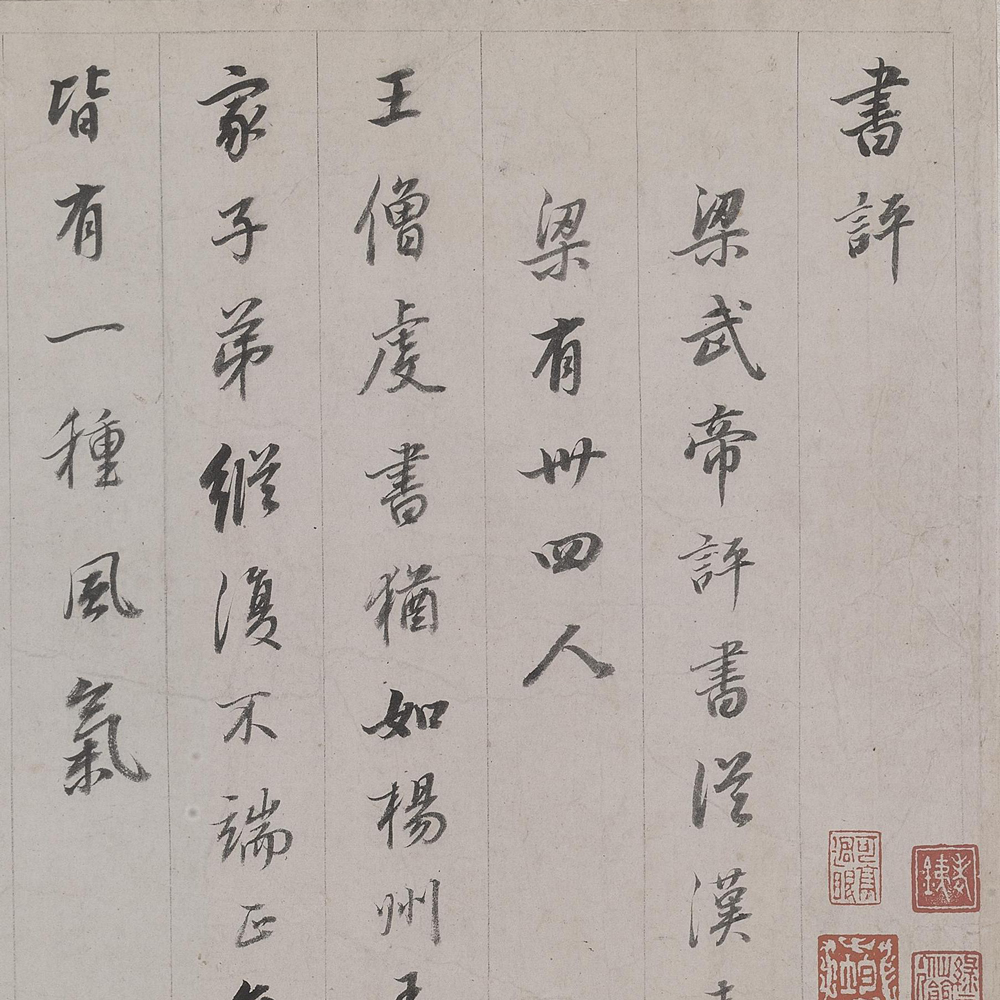 書評
梁武帝評書從漢
梁有卅四人
王僧虔書猶如楊州
家子弟縱復不端正
皆有一種風氣